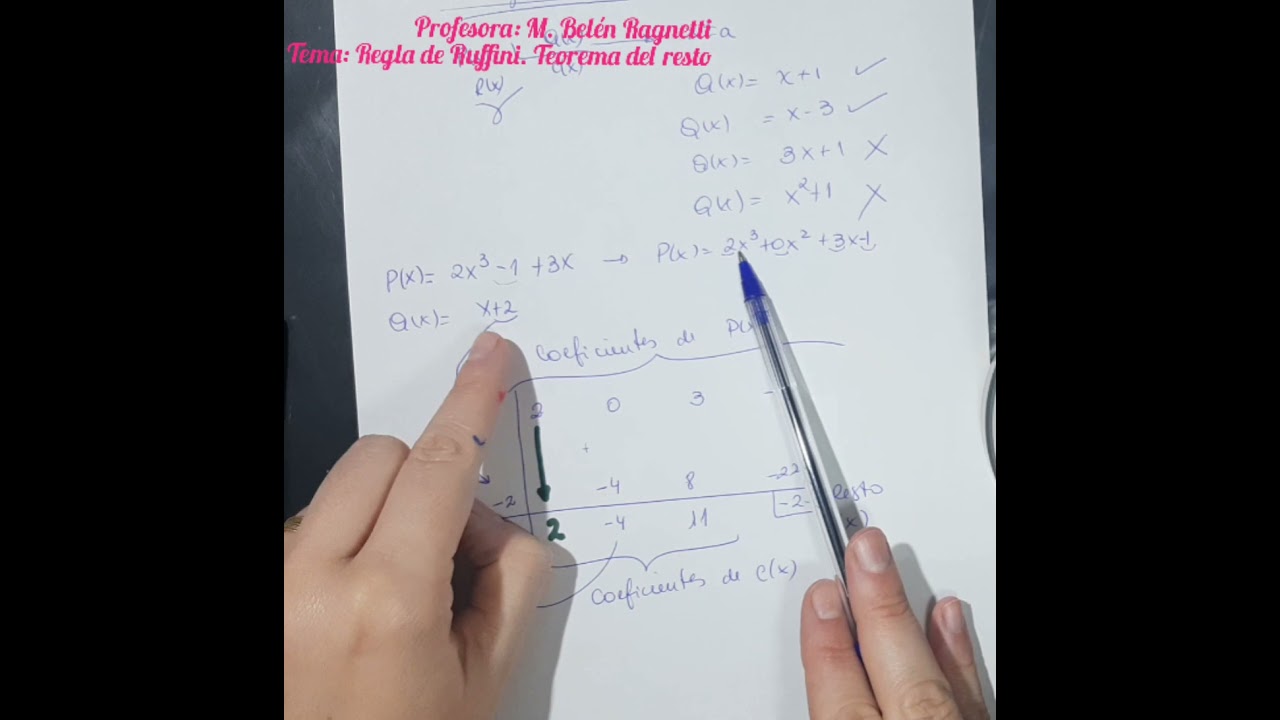 Profesora: M. Belén Ragnetti
Tema: Regla de Ruffini. Teorema del resto
Q(x)= x+1 ✓
Q(x) = x-3 ✓
Q(x)= 3x+1 X
Q(x)= x²+1 X
P(x)= 2x³-1+3x → P(x)= 2x³+0x²+3x-1
Q(x)= x+2
Coeficientes de
2 0 3
-4 8 -22
-2
2 -4 11
Resto
Coeficientes de C(x)